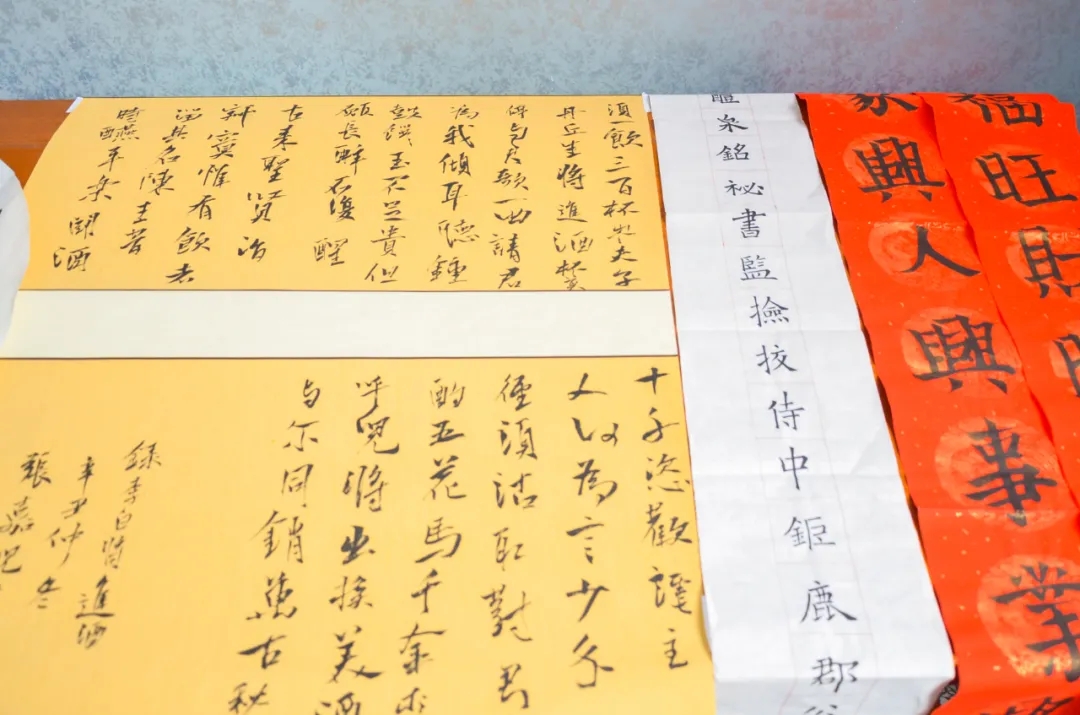 福旺財旺
家興人興事業
醴泉銘祕書監撿挍侍中鉅鹿郡
須飲三百杯岑夫子
丹丘生將進酒莫
停与君歌一曲請君
為我傾耳聽鍾
鼓饌玉不足貴但
願長醉不復醒
古来聖賢皆
寂寞惟有飲者
留其名陳王昔
時讌平樂鬪酒
十千恣歡謔主
人何為言少錢
徑須沽取對君
酌五花馬千金裘
呼兒將出換美酒
与尔同銷萬古愁
錄李白將進酒
辛丑仲冬
張嘉